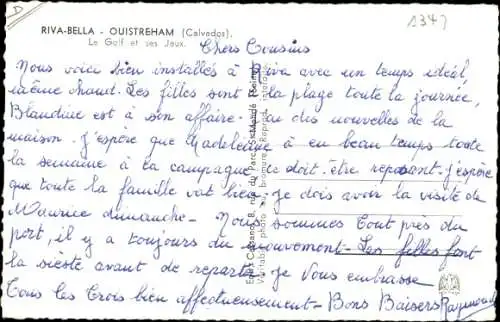 D
1347
RIVA-BELLA - OUISTREHAM (Calvados).
Le Golf et ses Jeux.
Chers Cousins
Nous voici bien installés à Riva avec un temps idéal,
même chaud. Les filles sont à la plage toute la journée,
Blandine est à son affaire. J'ai eu des nouvelles de la
maison. J'espère que Madeleine a eu beau temps toute
la semaine à la campagne ce doit être reposant. J'espère
que toute la famille vat bien. Je dois avoir la visite de
Maurice dimanche - Nous sommes tout près du
port, il y a toujours du mouvement - Les filles font
la sieste avant de repartir. Je vous embrasse
Tous les trois bien affectueusement - Bons Baisers Raymonde